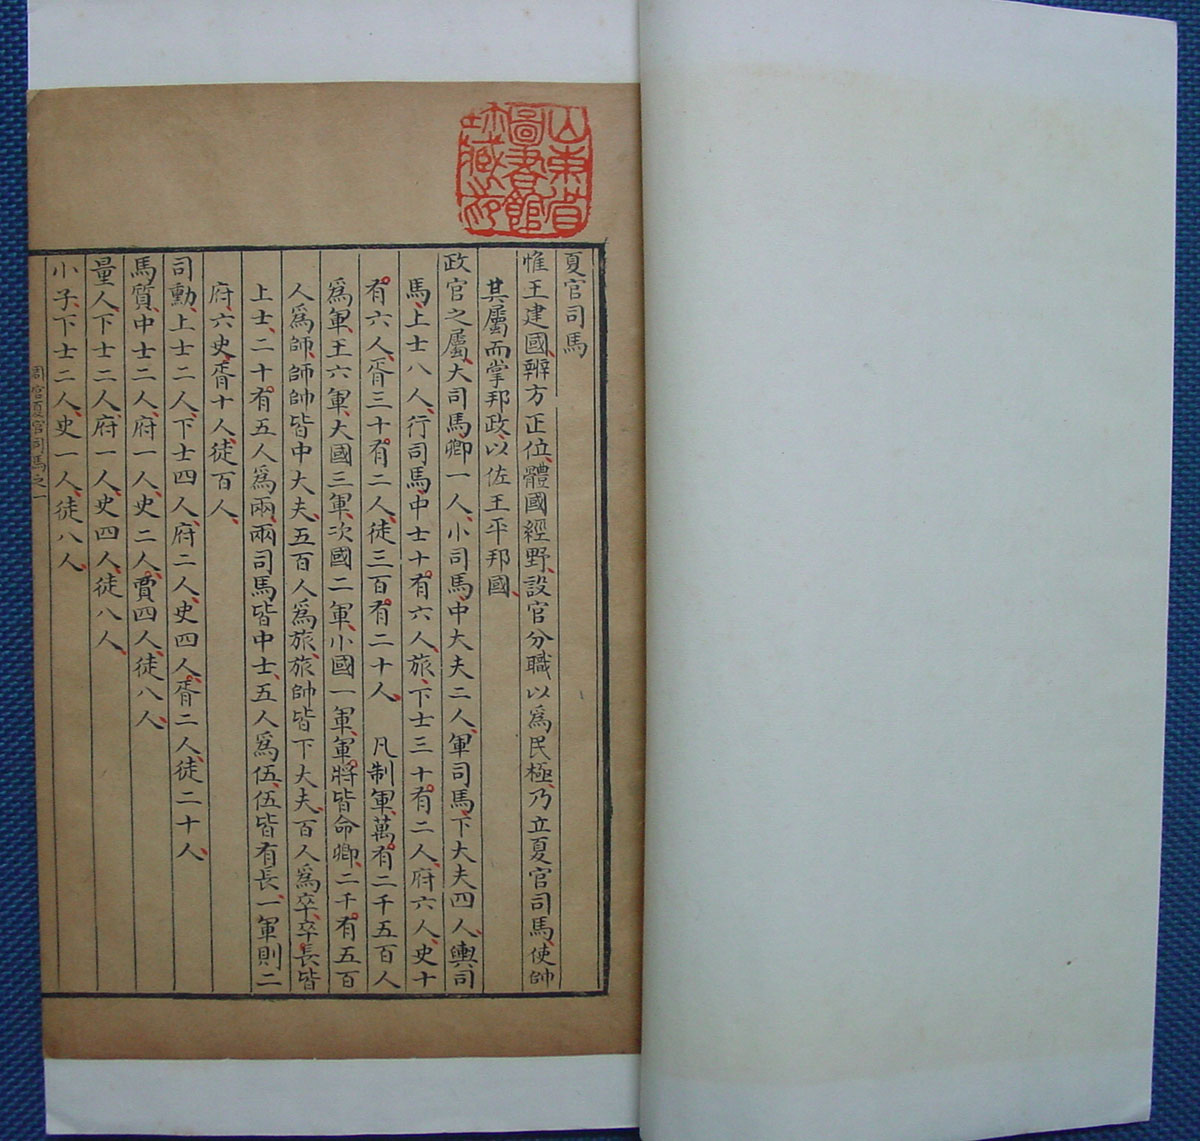 山東省
圖書館
珍藏印
夏官司馬
惟王建國辨方正位體國經野設官分職以爲民極乃立夏官司馬使帥
其屬而掌邦政以佐王平邦國
政官之屬大司馬卿一人小司馬中大夫二人軍司馬下大夫四人輿司
馬上士八人行司馬中士十有六人旅下士三十有二人府六人史十
有六人胥三十有二人徒三百有二十人 凡制軍萬有二千五百人
爲軍王六軍大國三軍次國二軍小國一軍軍將皆命卿二千有五百
人爲師師帥皆中大夫五百人爲旅旅帥皆下大夫百人爲卒卒長皆
上士二十有五人爲兩兩司馬皆中士五人爲伍伍皆有長一軍則二
府六史胥十人徒百人
司勳上士二人下士四人府二人史四人胥二人徒二十人
馬質中士二人府一人史二人賈四人徒八人
量人下士二人府一人史四人徒八人
小子下士二人史一人徒八人
周官夏官司馬之一